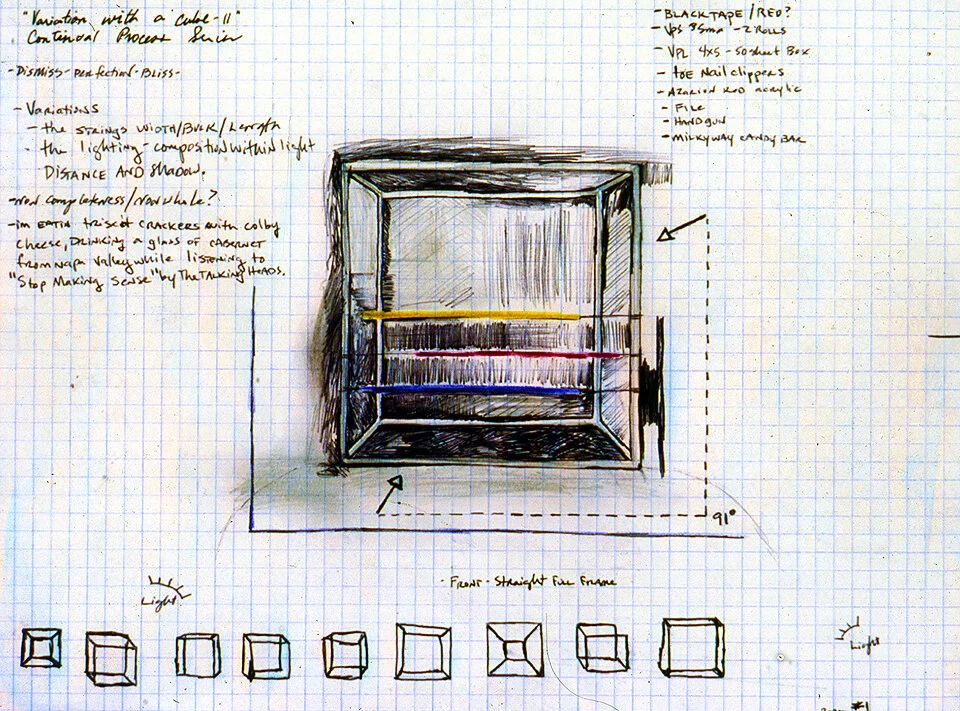 "Variation with a Cube-II"
Continual Process Series
-Dismiss-perfection-Bliss-
- Variations
- the strings width/Bulk/Length
- the lighting-composition within light
DISTANCE AND Shadow.
-non completeness/nonwhole?
-im EATIN triscit CRACKERS with colby
cheese, DRINKING a glass of CABERNET
from napa valley while listening to
"Stop Making Sense" by The TALKING HEADS.
- BLACK TAPE / RED?
- VPS 35mm - 2 ROLLS
- VPL 4x5 - 50 sheet Box
- toe Nail clippers
- RED acrylic
- FILE
- HANDGUN
- MILKYWAY CANDY BAR
91°
- FRONT - Straight Full Frame
Light
Light
#1